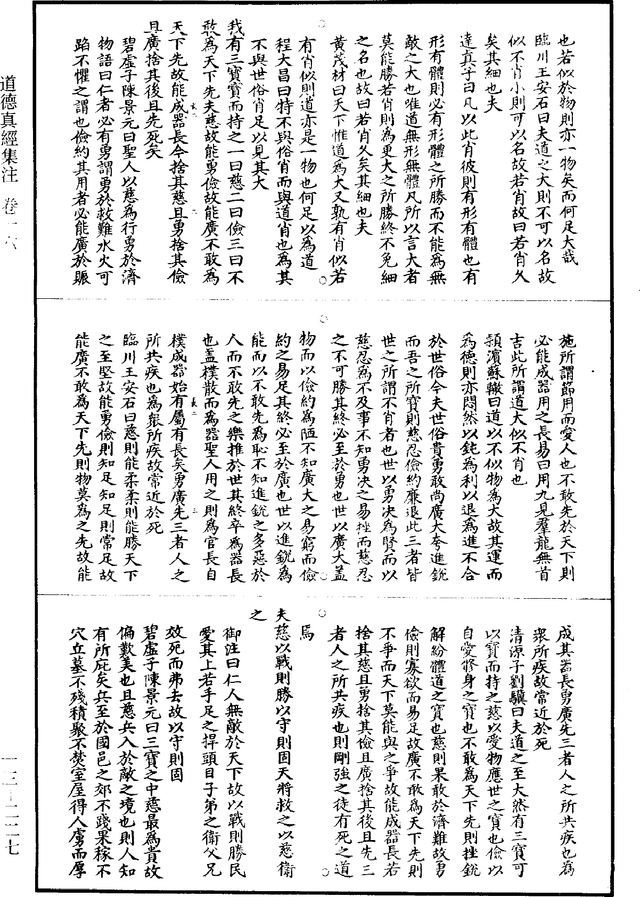 道德真經集注 卷一六
也若似於物則亦一物矣而何足大哉
臨川王安石曰夫道之大則不可以名故
似不肖小則可以名故若肖故曰若肖久
矣其細也夫
達真子曰凡以此肖彼則有形有體也有
形有體則必有形體之所勝而不能為無
敵之大也唯道無形無體凡所以言大者
莫能勝若肖則為更大之所勝終不免細
之名也故曰若肖久矣其細也夫
黃茂材曰天下惟道為大又孰有肖似若
有肖似則道亦是一物也何足以為道
程大昌曰特不與俗肖而與道肖也為其
不與世俗肖足以見其大
我有三寶寶而持之一曰慈二曰儉三曰不
敢為天下先夫慈故能勇儉故能廣不敢為
天下先故能成器長今捨其慈且勇捨其儉
且廣捨其後且先死矣
碧虛子陳景元曰聖人以慈為行勇於濟
物語曰仁者必有勇謂勇於救難水火可
蹈不懼之謂也儉約其用者必能廣於賑
施所謂節用而愛人也不敢先於天下則
必能成器用之長易曰用九見羣龍無首
吉此所謂道大似不肖也
潁濱蘇轍曰道以不似物為大故其運而
為德則亦悶然以鈍為利以退為進不合
於世俗今夫世俗貴勇敢尚廣大夸進銳
而吾之所寶則慈忍儉約廉退此三者皆
世之所謂不肖者也世以勇決為賢而以
慈忍為不及事不知勇決之易挫而慈忍
之不可勝其終必至於勇也世以廣大蓋
物而以儉約為陋不知廣大之易窮而儉
約之易足其終必至於廣也世以進銳為
能而以不敢先為恥不知進銳之多惡於
人而不敢先之樂推於世其終卒為器長
也蓋樸散而為器聖人用之則為官長自
樸成器始有屬有長矣勇廣先三者人之
所共疾也為衆所疾故常近於死
臨川王安石曰慈則能柔柔則能勝天下
之至堅故能勇儉則知足知足則常足故
能廣不敢為天下先則物莫為之先故能
成其器長勇廣先三者人之所共疾也為
衆所疾故常近於死
清源子劉驥曰夫道之至大然有三寶可
以寶而持之慈以愛物應世之寶也儉以
自愛修身之寶也不敢為天下先則挫銳
解紛體道之寶也慈則果敢於濟難故勇
儉則寡欲而易足故廣不敢為天下先則
不爭而天下莫能與之爭故能成器長若
捨其慈且勇捨其儉且廣捨其後且先三
者人之所共疾也則剛強之徒有死之道
焉
夫慈以戰則勝以守則固天將救之以慈衛
之
御注曰仁人無敵於天下故以戰則勝民
愛其上若手足之捍頭目子弟之衛父兄
效死而弗去故以守則固
碧虛子陳景元曰三寶之中慈最為貴故
偏歎美也且慈兵入於敵之境也則人知
有所庇矣兵至於國邑之郊不踐果稼不
穴立墓不殘積聚不焚室屋得人虜而厚
一三－二二七